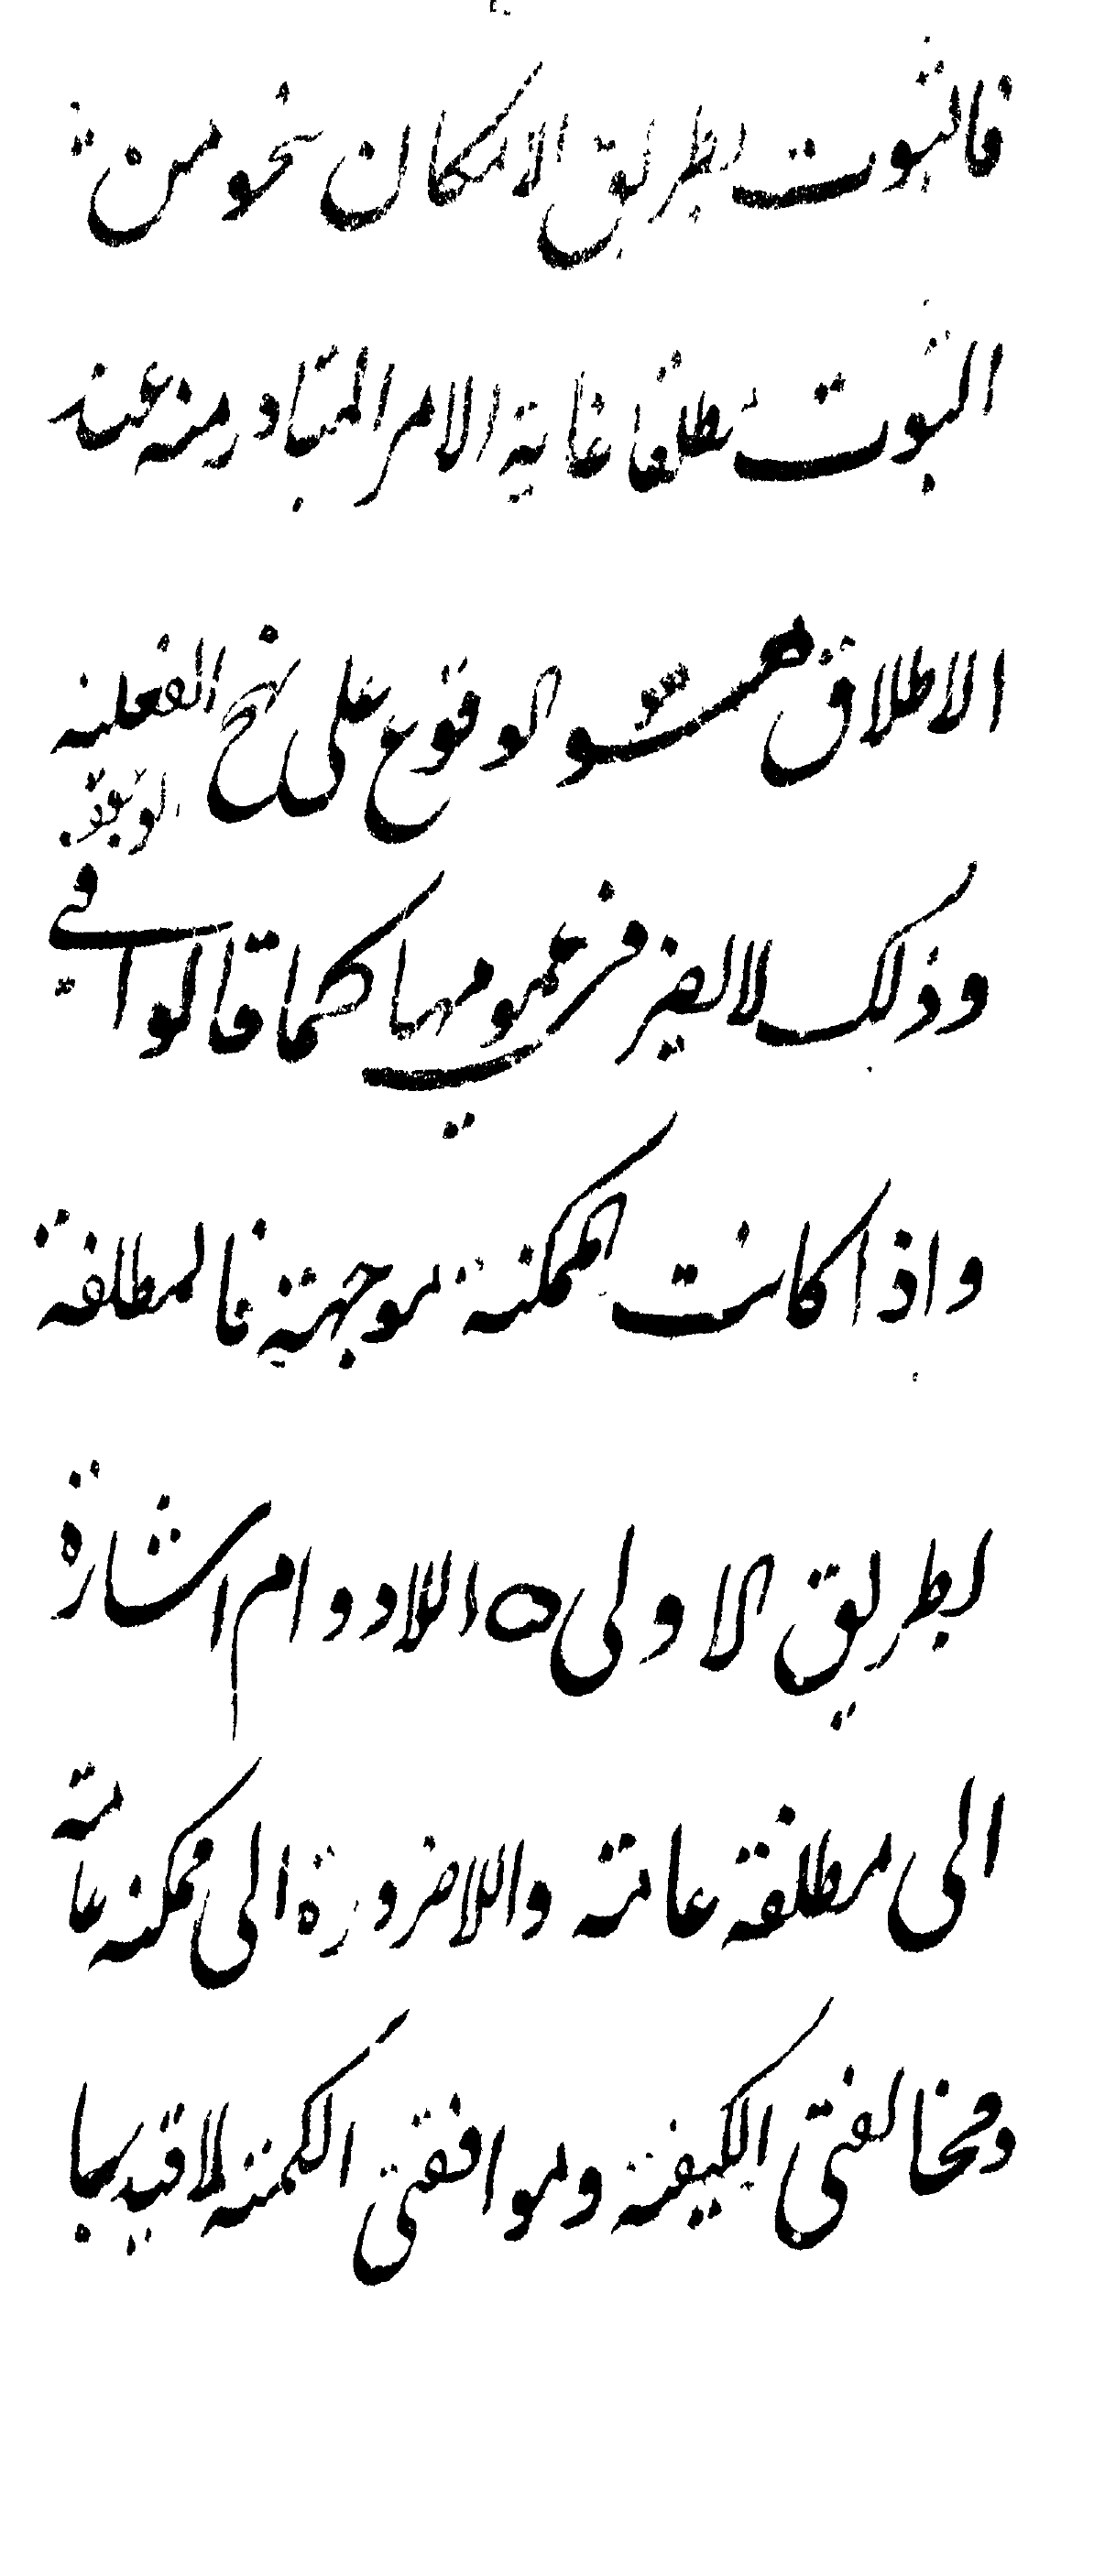 فالثبوت بطريق الامكان نحو من
الثبوت مطلقا غاية الامر المتبادر منه عند
الاطلاق هو الوقوع على نهج الفعلية
وذلك لا يضر في عمومها كما قالوا في
الوجود
واذا كانت الممكنة موجهة فالمطلقة
بطريق الاولى ٥ اللادوام اشارة
الى مطلقة عامة واللاضرورة الى ممكنة عامة
ومخالفتي الكيفية وموافقتي الكمية لما قيد بهما